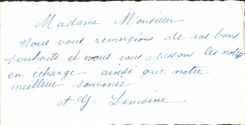 Madame Monsieur
Nous vous remercions de vos bons
souhaits et nous vous adressons les notres
en echange ainsi que notre
meilleur souvenir
et G. Lemoine